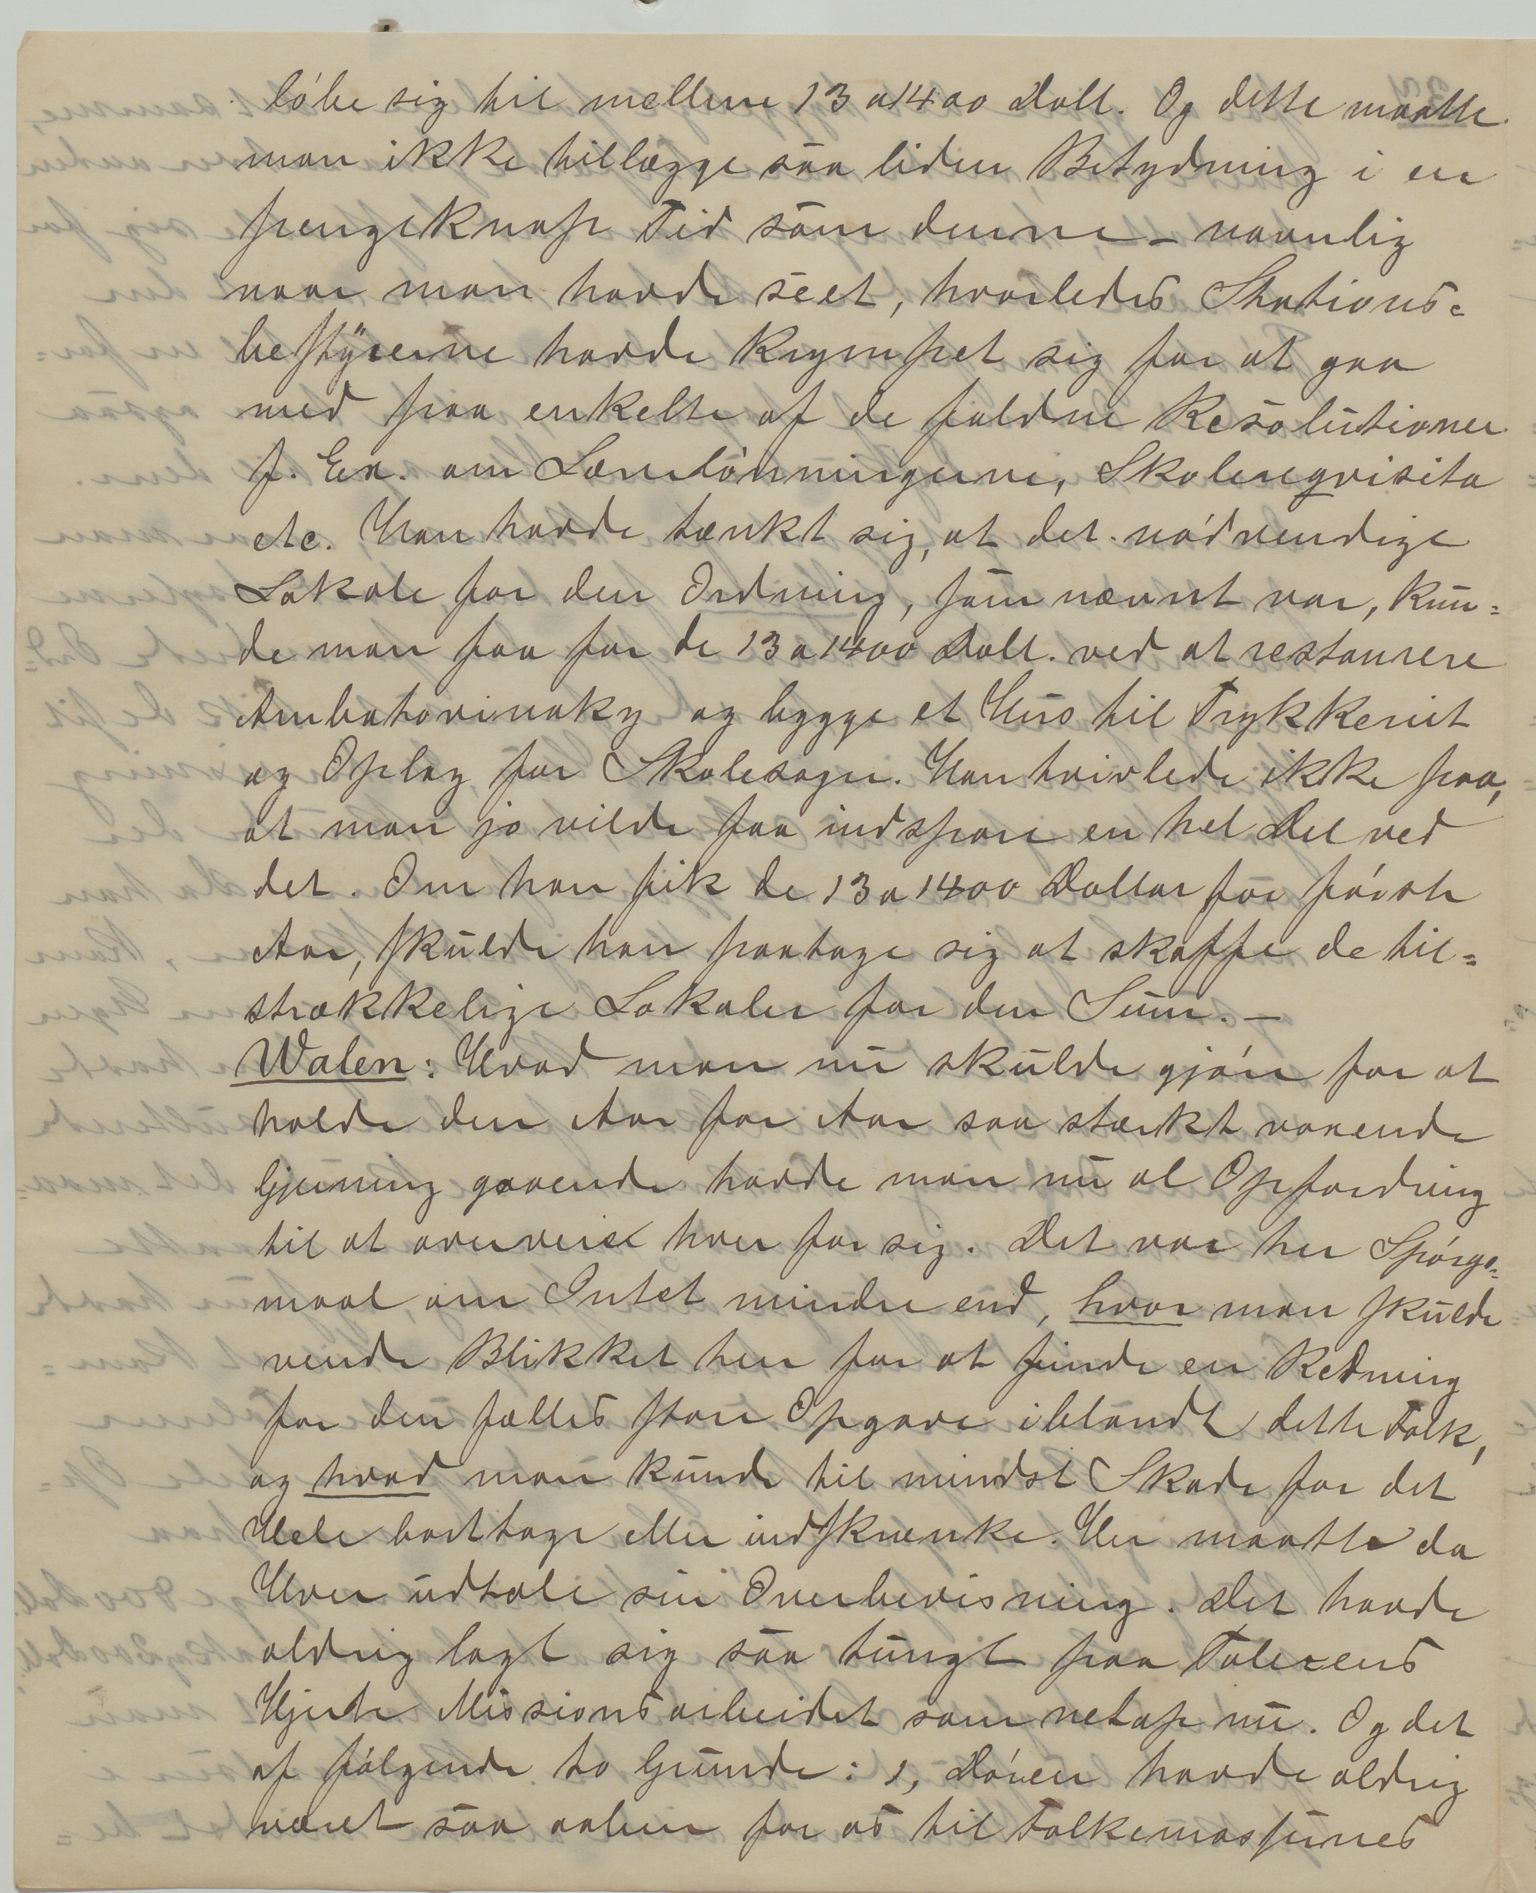 løbe sig til mellem 13 a 1400 Doll. Og dette maatte
man ikke tillægge saa liden Betydning i en
pengeknap Tid som denne – navnlig
naar man havde seet, hvorledes Stations=
bestÿrerne havde krympet sig for at gaa
med paa enkelte af de faldne Resolutioner
f. Ex. om Lærerlønningerne, Skolereqvisita
etc. Han havde tænkt sig, at det nødvendige
Lokale for den Ordning, som nævnt var, kun=
de man faa for de 13 a 1400 Doll. ved at restaurere
Ambatovinaky og bygge et Hus til Trykkeriet
og Oplag for Skolesager. Han tvivlede ikke paa,
at man jo vilde faa indspare en hel Del ved
det. Om han fik de 13 a 1400 Dollar for første
Aar, skulde han paatage sig at skaffe de til=
strækkelige Lokaler for den Sum. –
Walen: Hvad man nu skulde gjøre for at
holde den Aar for Aar saa stærkt voxende
Gjerning gaaende havde man nu al Opfordring
til at overveie hver for sig. Det var her Spørgs=
maal om Intet mindre end, hvor man skulde
vende Blikket hen for at finde en Redning
for den fælles store Opgave iblandt dette Folk,
og hvad man kunde til mindst Skade for det
Hele borttage eller indskrænke. Her maatte da
Hver udtale sin Overbevisning. Det havde
aldrig lagt sig saa tungt paa Talerens
Hjerte Missionsarbeidet som netop nu. Og det
af følgende to Grunde: 1, Døren havde aldrig
været saa aaben for os til Folkemassernes